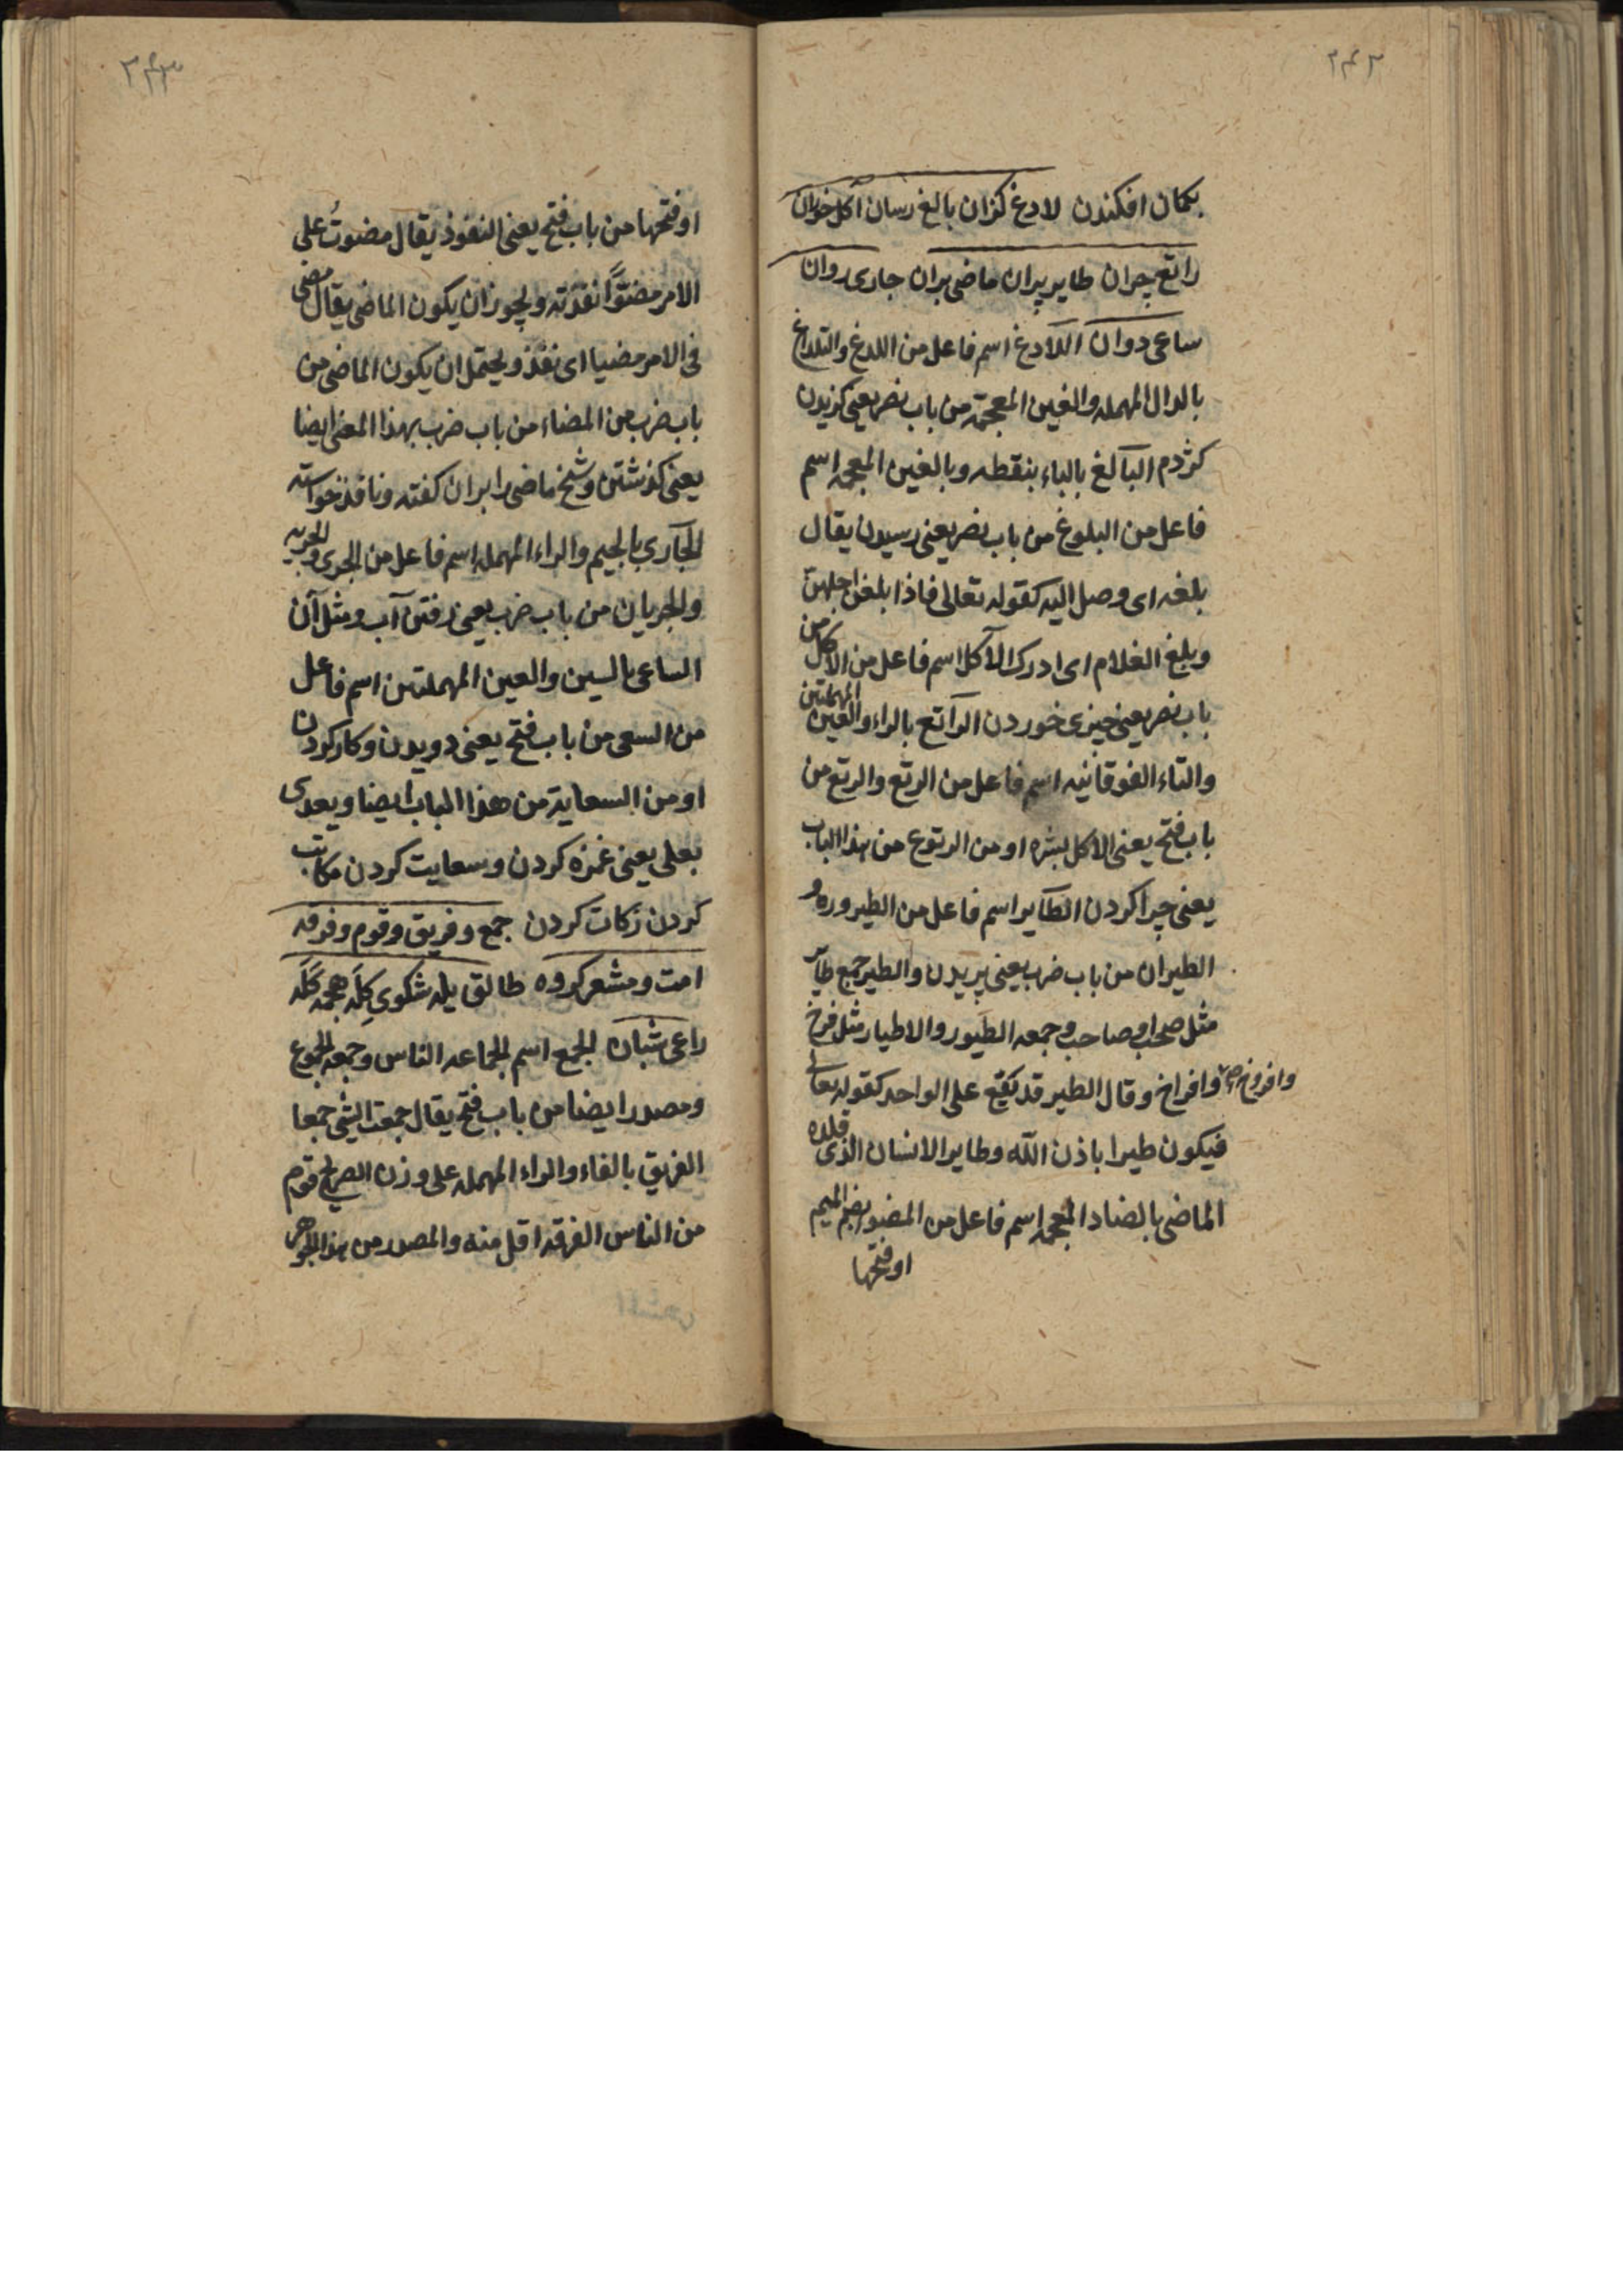 ۲۴۲
بکمان افکندن لادغ کزان بالغ رسان آکل خوران
راتع چران طایر پران ماضی بران جاری روان
ساعی دوان اللادغ اسم فاعل من اللدغ والتلداغ
بالدال المهمله والغین المعجمة من باب نصر یعنی کزیدن
کژدم البالغ بالباء بنقطه وبالغین المعجمه اسم
فاعل من البلوغ من باب نصر یعنی رسیدن یقال
بلغه ای وصل الیه کقوله تعالی فاذا بلغن اجلهن
وبلغ الغلام ای ادرک الآکل اسم فاعل من الاکل من
باب نصر یعنی چیزی خوردن الراتع بالراء والعین المهملتین
والتاء الفوقانیه اسم فاعل من الرتع والرتع من
باب فتح یعنی الاکل بشره او من الرتوع من هذا الباب
یعنی چرا کردن الطایر اسم فاعل من الطیروره و
الطیران من باب ضرب یعنی پریدن والطیر جمع طایر
مثل صحب وصاحب وجمعه الطیور والاطیار مثل فرخ
وافروخ وافراخ وقال الطیر قد یقع علی الواحد کقوله تعالی
فیکون طیرا باذن الله وطایر الانسان الذی قلده
الماضی بالضاد المعجمه اسم فاعل من المضو بضم المیم
اوفتحها
۲۴۳
اوفتحها من باب فتح یعنی النفوذ یقال مضوت علی
الامر مضوًّا نفذته ویجوز ان یکون الماضی یقال مضی
فی الامر مضیا ای نفذ ویحتمل ان یکون الماضی من
باب ضرب من المضاء من باب ضرب بهذا المعنی ایضا
یعنی کذشتن وشیخ ماضی را بران کفته ونافذ خواسته
الجاری بالجیم والراء المهمله اسم فاعل من الجری والجریه
والجریان من باب ضرب یعنی رفتن آب ومثل آن
الساعی بالسین والعین المهملتین اسم فاعل
من السعی من باب فتح یعنی دویدن وکار کردن
او من السعایة من هذا الباب ایضا ویعدی
بعلی یعنی غمزه کردن وسعایت کردن مکاتب
کردن زکات کردن جمع وفریق وقوم وفرقه
امت ومشعر کروه طالق یله شکوی کِلَه هجمه کَلَه
راعی شبان الجمع اسم لجماعه الناس وجمعه الجموع
ومصدر ایضا من باب فتح یقال جمعت الشی جمعا
الفریق بالفاء والراء المهمله علی وزن الصریح قوم
من الناس الفرقه اقل منه والمصدر من هذا الجوهر